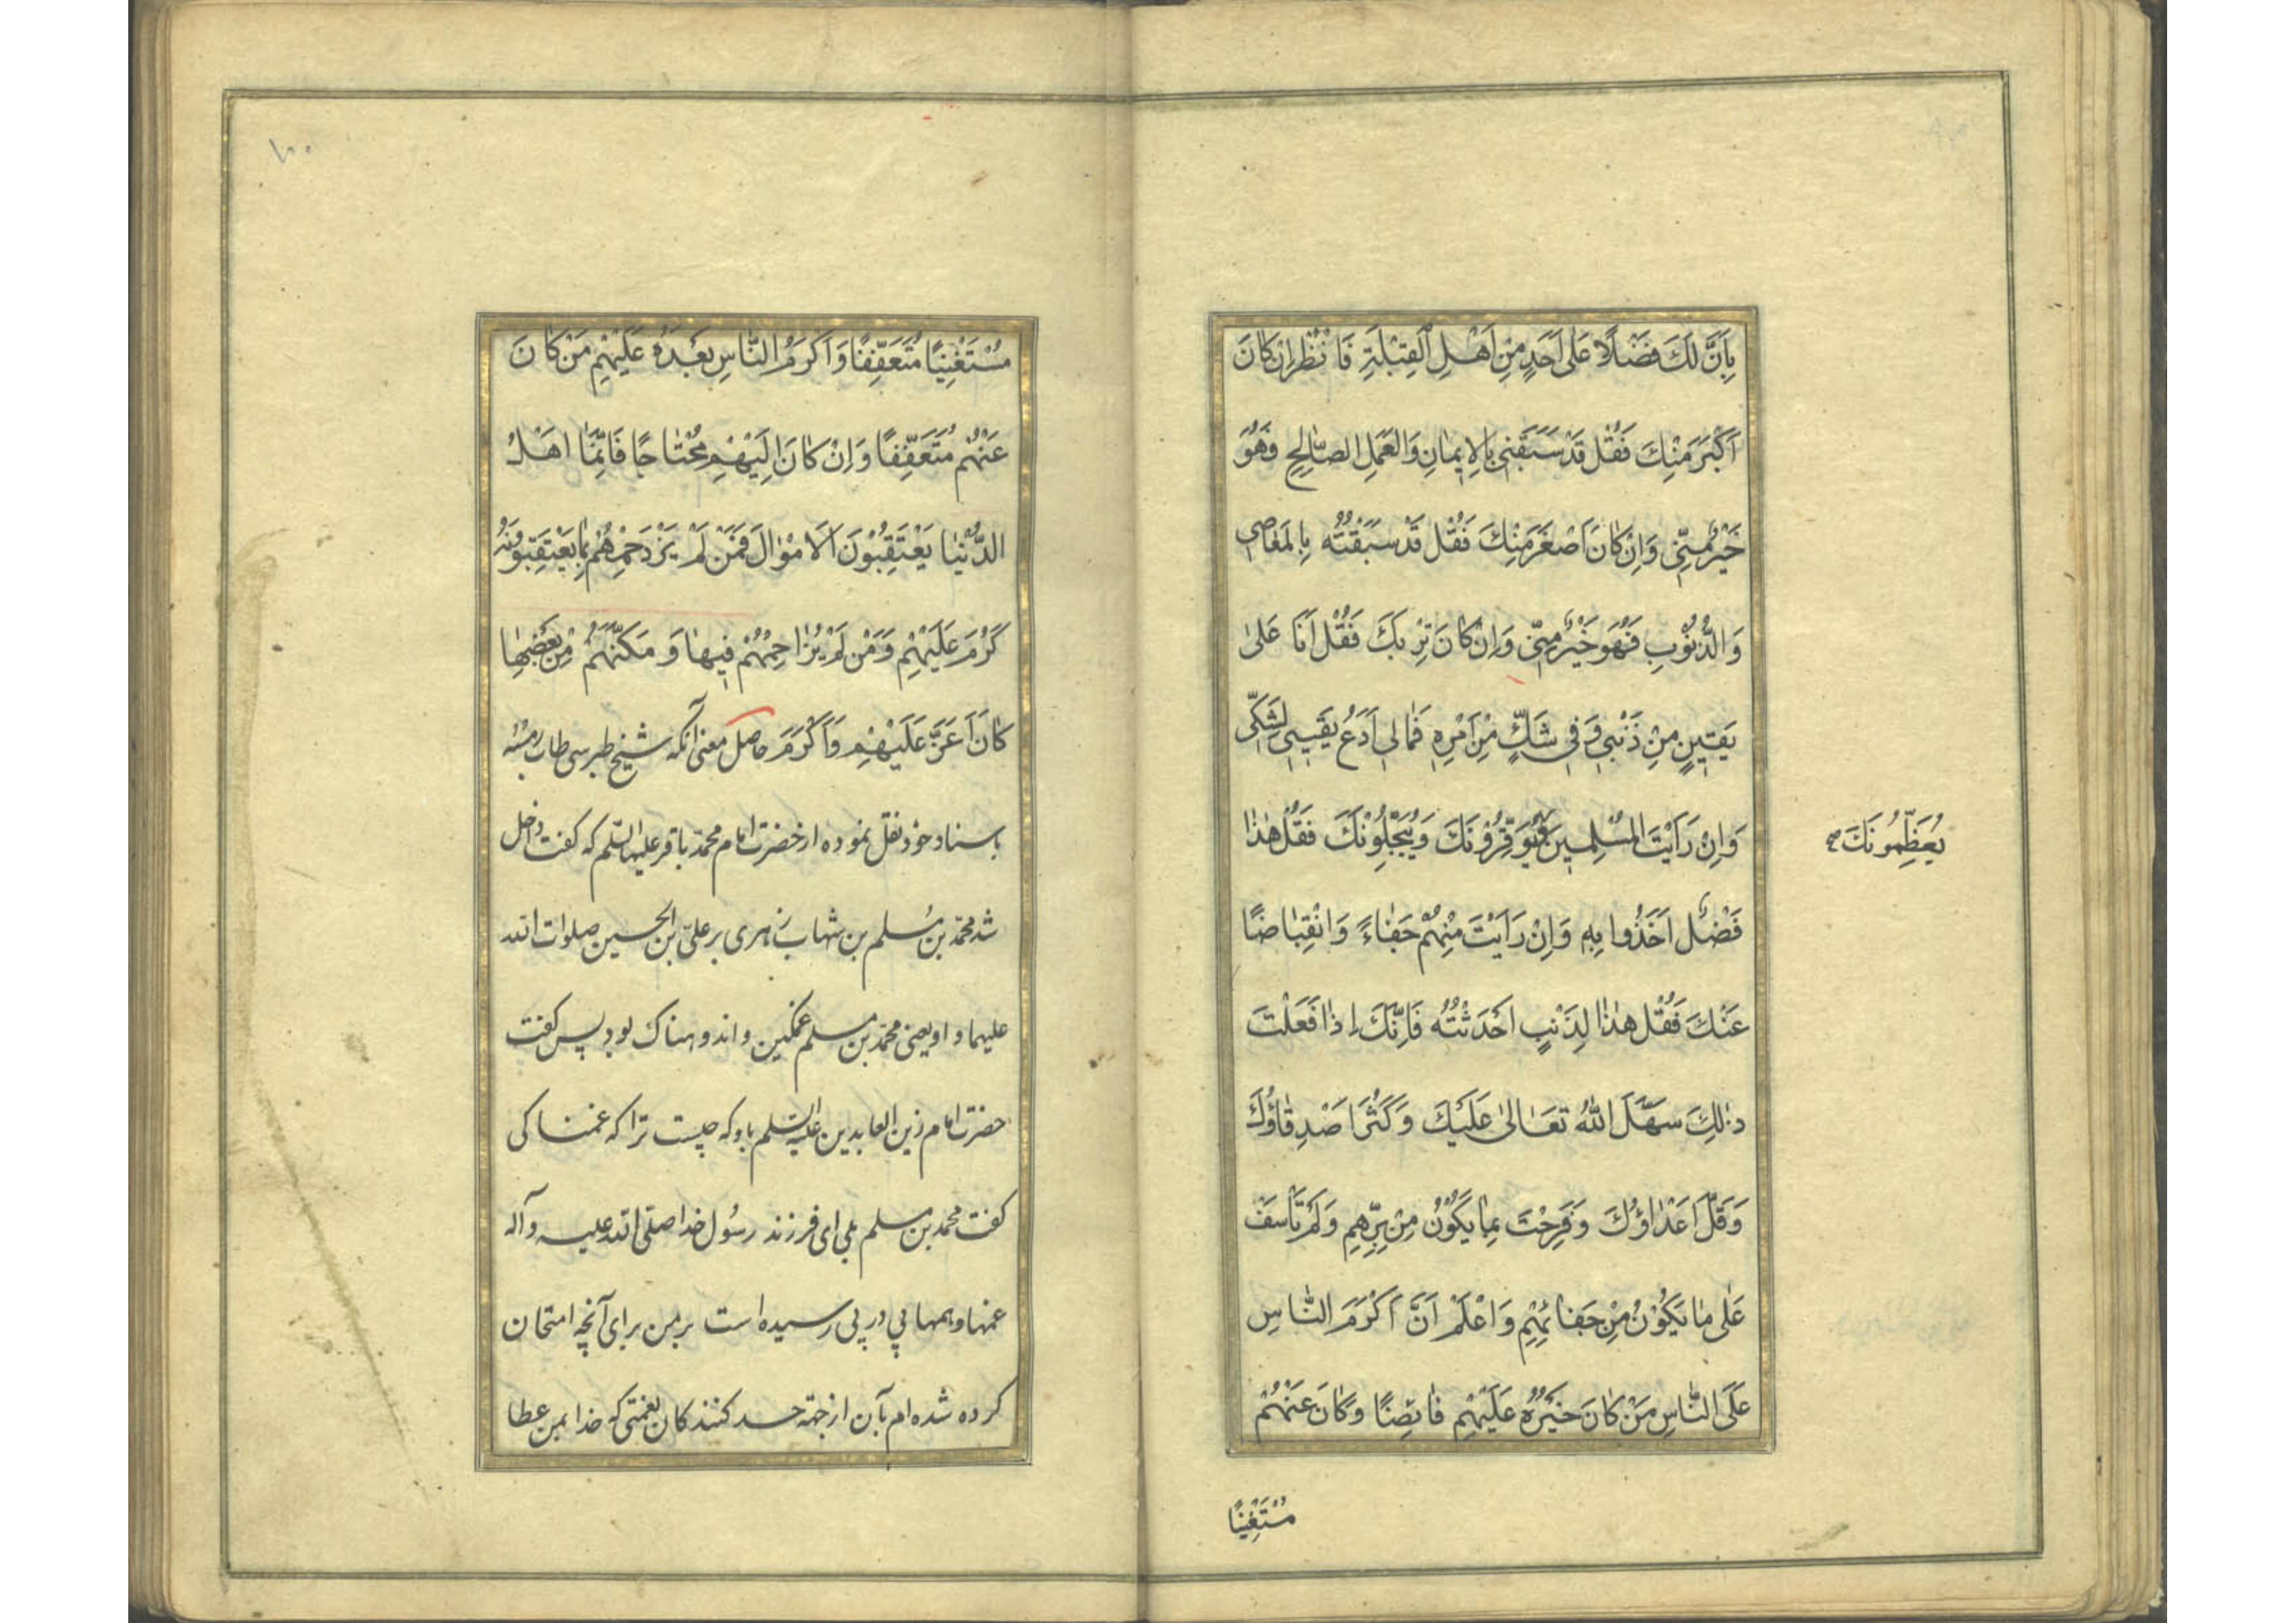 بِاَنَّ لَكَ فَضْلًا عَلٰى اَحَدٍ مِنْ اَهْلِ الْقِبْلَةِ فَانْظُرْ اِنْ كَانَ
اَكْبَرَ مِنْكَ فَقُلْ قَدْ سَبَقَنِى بِالْاِيمٰانِ وَالْعَمَلِ الصّٰالِحِ فَهُوَ
خَيْرٌ مِنِّى وَاِنْ كٰانَ اَصْغَرَ مِنْكَ فَقُلْ قَدْ سَبَقْتُهُ بِالْمَعٰاصِى
وَالذُّنُوبِ فَهُوَ خَيْرٌ مِنِّى وَاِنْ كٰانَ تِرْبَكَ فَقُلْ اَنَا عَلىٰ
يَقِينٍ مِنْ ذَنْبِى وَفِى شَكٍّ مِنْ اَمْرِهِ فَمٰالِى اَدَعُ يَقِينِى لِشَكِّى
وَاِنْ رَاَيْتَ الْمُسْلِمِينَ يُوَقِّرُوْنَكَ وَيُبَجِّلُوْنَكَ فَقُلْ هٰذٰا
يُعَظِّمُونَكَ صح
فَضْلٌ اَخَذُوا بِهِ وَاِنْ رَاَيْتَ مِنْهُمْ جَفٰاءً وَانْقِبٰاضًا
عَنْكَ فَقُلْ هٰذٰا لِذَنْبٍ اَحْدَثْتُهُ فَاِنَّكَ اِذٰا فَعَلْتَ
ذٰلِكَ سَهَّلَ اللّٰهُ تَعَالىٰ عَلَيْكَ وَكَثُرَ اَصْدِقٰاؤُكَ
وَقَلَّ اَعْدٰاؤُكَ وَفَرِحْتَ بِمٰا يَكُوْنُ مِنْ بِرِّهِمْ وَلَمْ تَاْسَفْ
عَلٰى مٰا يَكُوْنُ مِنْ جَفٰائِهِمْ وَاعْلَمْ اَنَّ اَكْرَمَ النّٰاسِ
عَلَى النّٰاسِ مَنْ كٰانَ خَيْرُهُ عَلَيْهِمْ فٰايِضًا وَكٰانَ عَنْهُمْ
مُسْتَغْنِيًا
١٠٠
مُسْتَغْنِيًا مُتَعَفِّفًا وَاَكْرَمُ النّٰاسِ بَعْدَهُ عَلَيْهِمْ مَنْ كٰانَ
عَنْهُمْ مُتَعَفِّفًا وَاِنْ كٰانَ اِلَيْهِمْ مُحْتٰاجًا فَاِنَّمٰا اَهْلُ
الدُّنْيٰا يَعْتَقِبُوْنَ الْاَمْوٰالَ فَمَنْ لَمْ يَزْدَحِمْهُمْ بِمٰا يَعْتَقِبُونَهُ
كَرُمَ عَلَيْهِمْ وَمَنْ لَمْ يُزٰاحِمْهُمْ فِيهٰا وَمَكَّنَهُمْ مِنْ بَعْضِهٰا
كٰانَ اَعَزَّ عَلَيْهِمْ وَاَكْرَمَ حاصل معنى آنكه شيخ طبرسى طاب رمسه
باسناد خود نقل نموده از حضرت امام محمد باقر عليه السلم كه گفت داخل
شد محمّد بن مُسلم بن شهاب زهرى بر علىّ بن الحسين صلوات الله
عليهما و او يعنى محمّد بن مسلم غمگين و اندوهناك بود پس گفت
حضرت امام زين العابدين عليه السلم باو كه چيست ترا كه غمناكى
گفت محمد بن مسلم بلى اى فرزند رسُول خدا صلى الله عليه وآله
غمها و همها پى در پى رسيده است بر من براى آنچه امتحان
كرده شده‌ام بآن از جهة حسد كنندكان نعمتى كه خدا بمن عطا